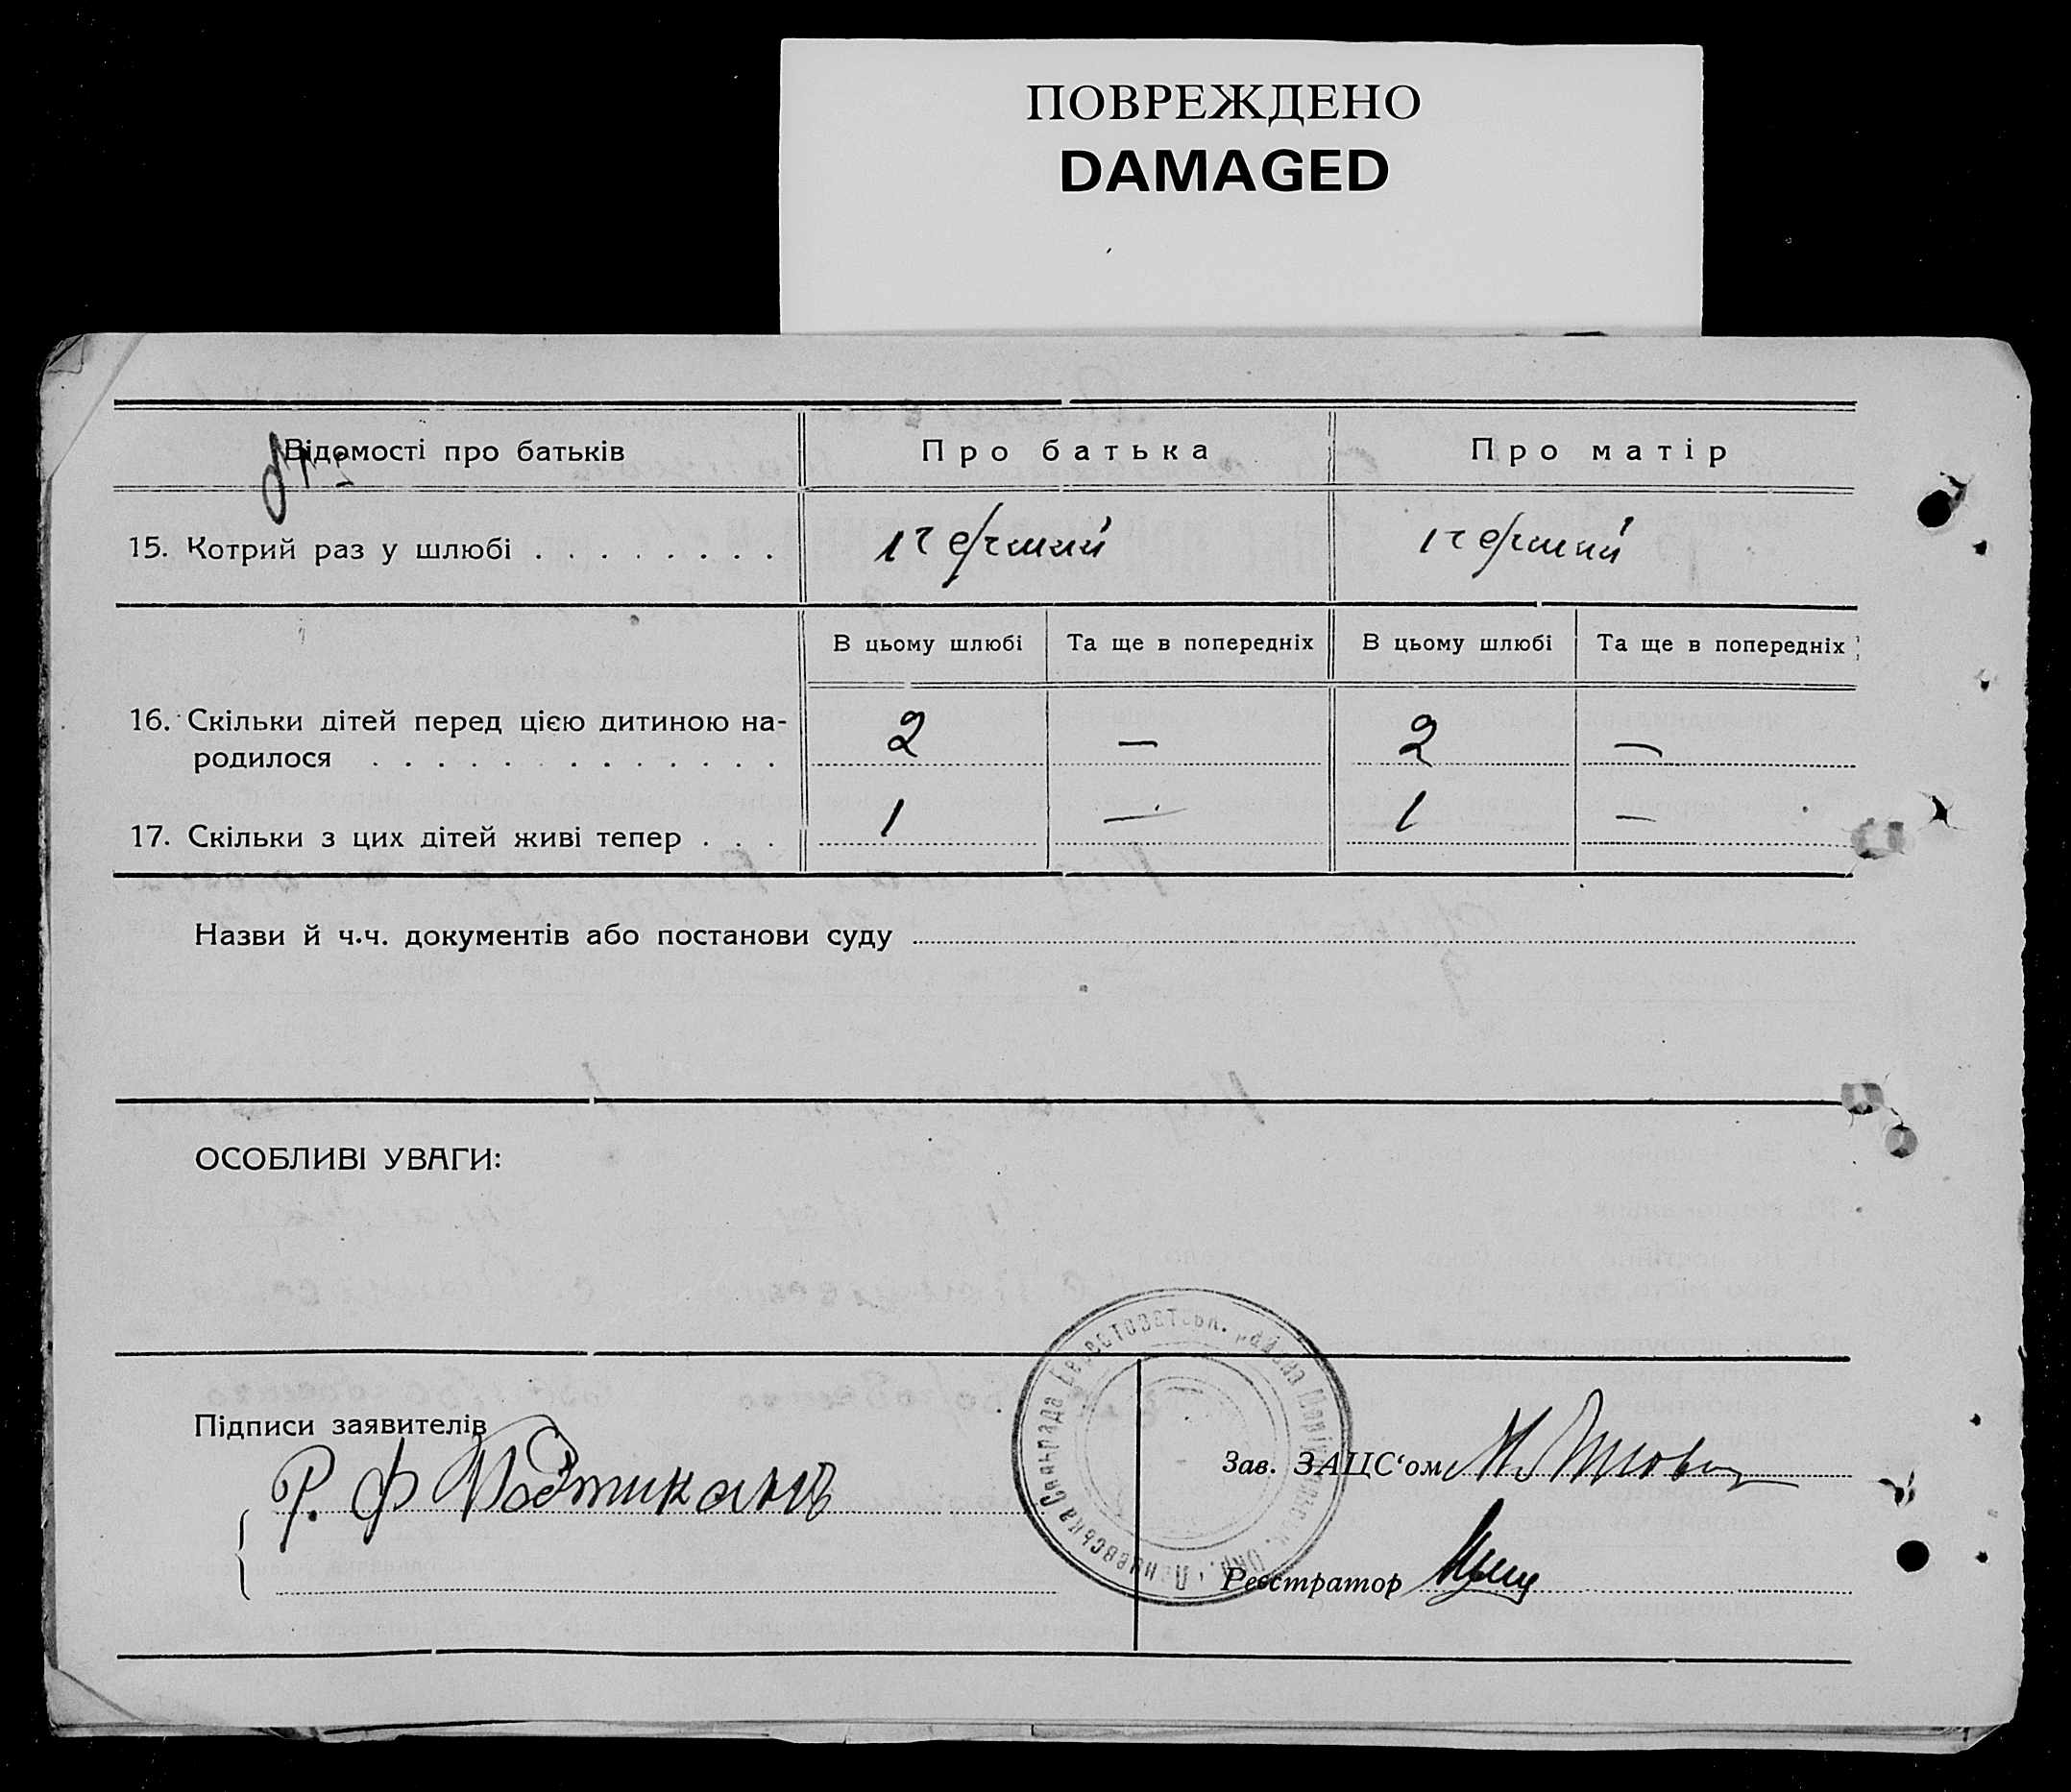 ПОВРЕЖДЕНО
DAMAGED
Відомості про батьків
Про батька
Про матір
15. Котрий раз у шлюбі . . . . . . . .
перший
перший
В цьому шлюбі
Та ще в попередніх
В цьому шлюбі
Та ще в попередніх
16. Скільки дітей перед цією дитиною на-
родилося . . . . . . . . . . . . .
2
—
2
—
17. Скільки з цих дітей живі тепер . . .
1
—
1
—
Назви й ч.ч. документів або постанови суду
ОСОБЛИВІ УВАГИ:
Підписи заявителів
Р. Ф
Зав. ЗАЦС‘ом
Реєстратор